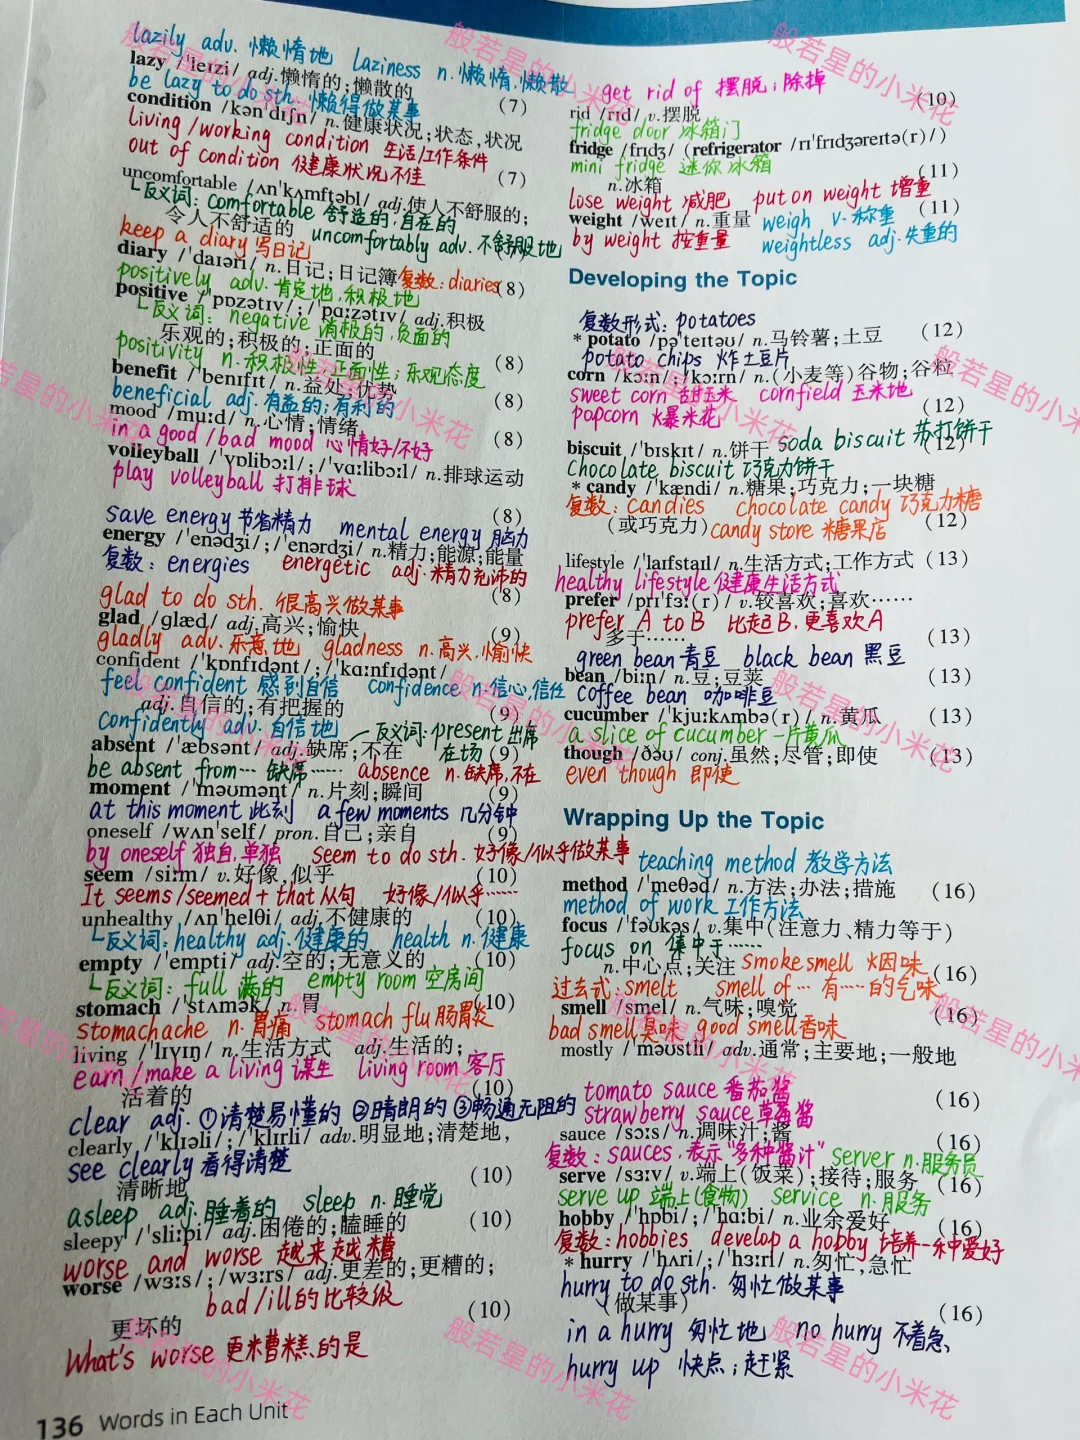 lazily adv. 懒惰地 laziness n. 懒惰,懒散
lazy /ˈleɪzi/ adj.懒惰的;懒散的
be lazy to do sth. 懒得做某事 (7)
condition /kənˈdɪʃn/ n.健康状况;状态,状况
living/working condition 生活/工作条件
out of condition 健康状况不佳 (7)
uncomfortable /ʌnˈkʌmftəbl/ adj.使人不舒服的;
反义词: comfortable 舒适的;自在的
令人不舒适的 uncomfortably adv. 不舒服地
keep a diary 写日记
diary /ˈdaɪəri/ n.日记;日记簿 复数: diaries (8)
positively adv. 肯定地,积极地
positive /ˈpɒzətɪv/;/ˈpɑːzətɪv/ adj.积极
反义词: negative 消极的,负面的
乐观的;积极的;正面的 (8)
positivity n. 积极性;正面性;乐观态度
benefit /ˈbenɪfɪt/ n.益处;优势 (8)
beneficial adj. 有益的;有利的
mood /muːd/ n.心情;情绪 (8)
in a good/bad mood 心情好/不好
volleyball /ˈvɒlibɔːl/;/ˈvɑːlibɔːl/ n.排球运动
play volleyball 打排球 (8)
save energy 节省精力 mental energy 脑力
energy /ˈenədʒi/;/ˈenərdʒi/ n.精力;能源;能量
复数: energies energetic adj. 精力充沛的 (8)
glad to do sth. 很高兴做某事
glad /ɡlæd/ adj.高兴;愉快 (9)
gladly adv. 乐意地 gladness n. 高兴,愉快
confident /ˈkɒnfɪdənt/;/ˈkɑːnfɪdənt/
feel confident 感到自信 confidence n. 信心,信任
adj.自信的;有把握的 (9)
confidently adv. 自信地 反义词: present 出席
absent /ˈæbsənt/ adj.缺席;不在 在场 (9)
be absent from… 缺席…… absence n. 缺席,不在
moment /ˈməʊmənt/ n.片刻;瞬间 (9)
at this moment 此刻 a few moments 几分钟
oneself /wʌnˈself/ pron.自己;亲自 (9)
by oneself 独自,单独 seem to do sth. 好像/似乎做某事
seem /siːm/ v.好像,似乎 (10)
It seems/seemed + that从句 好像/似乎……
unhealthy /ʌnˈhelθi/ adj.不健康的 (10)
反义词: healthy adj. 健康的 health n. 健康
empty /ˈempti/ adj.空的;无意义的 (10)
反义词: full 满的 empty room 空房间
stomach /ˈstʌmək/ n.胃 (10)
stomachache n. 胃痛 stomach flu 肠胃炎
living /ˈlɪvɪŋ/ n.生活方式 adj.生活的;
earn/make a living 谋生 living room 客厅
活着的 (10)
clear adj. ①清楚易懂的 ②晴朗的 ③畅通无阻的
clearly /ˈklɪəli/;/ˈklɪrli/ adv.明显地;清楚地,
see clearly 看得清楚
清晰地 (10)
asleep adj. 睡着的 sleep n. 睡觉
sleepy /ˈsliːpi/ adj.困倦的;瞌睡的 (10)
worse and worse 越来越糟
worse /wɜːs/;/wɜːrs/ adj.更差的;更糟的;
bad/ill的比较级
更坏的 (10)
What's worse 更糟糕的是
136 Words in Each Unit
get rid of 摆脱;除掉 (10)
rid /rɪd/ v.摆脱
fridge door 冰箱门
fridge /frɪdʒ/ (refrigerator /rɪˈfrɪdʒəreɪtə(r)/)
mini fridge 迷你冰箱
n.冰箱 (11)
lose weight 减肥 put on weight 增重
weight /weɪt/ n.重量 weigh v. 称重 (11)
by weight 按重量 weightless adj. 失重的
Developing the Topic
复数形式: potatoes
* potato /pəˈteɪtəʊ/ n.马铃薯;土豆 (12)
potato chips 炸土豆片
corn /kɔːn/;/kɔːrn/ n.(小麦等)谷物;谷粒
sweet corn 甜玉米 cornfield 玉米地 (12)
popcorn 爆米花
biscuit /ˈbɪskɪt/ n.饼干 soda biscuit 苏打饼干 (12)
chocolate biscuit 巧克力饼干
* candy /ˈkændi/ n.糖果;巧克力;一块糖
复数: candies chocolate candy 巧克力糖
(或巧克力) candy store 糖果店 (12)
lifestyle /ˈlaɪfstaɪl/ n.生活方式;工作方式 (13)
healthy lifestyle 健康生活方式
prefer /prɪˈfɜː(r)/ v.较喜欢;喜欢……
prefer A to B 比起B,更喜欢A
多于…… (13)
green bean 青豆 black bean 黑豆
bean /biːn/ n.豆;豆荚 (13)
coffee bean 咖啡豆
cucumber /ˈkjuːkʌmbə(r)/ n.黄瓜 (13)
a slice of cucumber 一片黄瓜
though /ðəʊ/ conj.虽然;尽管;即使 (13)
even though 即使
Wrapping Up the Topic
teaching method 教学方法
method /ˈmeθəd/ n.方法;办法;措施 (16)
method of work 工作方法
focus /ˈfəʊkəs/ v.集中(注意力、精力等于)
focus on 集中于……
n.中心点;关注 smoke smell 烟味 (16)
过去式: smelt smell of… 有……的气味
smell /smel/ n.气味;嗅觉 (16)
bad smell 臭味 good smell 香味
mostly /ˈməʊstli/ adv.通常;主要地;一般地
tomato sauce 番茄酱 (16)
strawberry sauce 草莓酱
sauce /sɔːs/ n.调味汁;酱 (16)
复数: sauces,表示"多种酱汁" server n. 服务员
serve /sɜːv/ v.端上(饭菜);接待;服务 (16)
serve up 端上(食物) service n. 服务
hobby /ˈhɒbi/;/ˈhɑːbi/ n.业余爱好 (16)
复数: hobbies develop a hobby 培养一种爱好
* hurry /ˈhʌri/;/ˈhɜːri/ n.匆忙,急忙
hurry to do sth. 匆忙做某事
(做某事) (16)
in a hurry 匆忙地 no hurry 不着急
hurry up 快点;赶紧
般若星的小米花